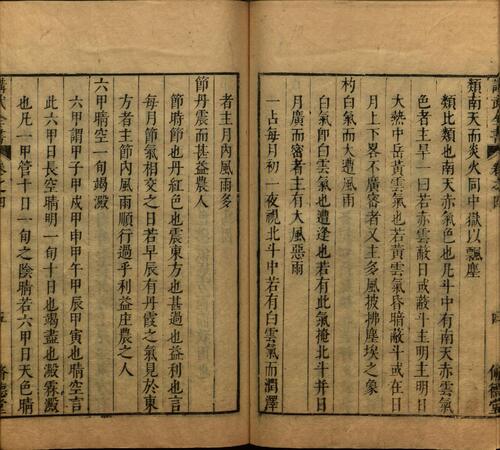 類南天而炎火同中獄以飄塵
類比類也南天赤氣色也凡斗中有南天赤雲氣
色者主旱一曰若赤雲蔽日或蔽斗主明主明日
大熱中岳黃雲氣也若黃雲氣昏暗蔽斗或在日
月上下畧不廣密者又主多風披拂塵埃之象
杓白氣而大遭風雨
白氣卽白雲氣也遭逢也若有此氣掩北斗并日
月廣而密者主有大風惡雨
一占每月初一夜視北斗中若有白雲氣而潤澤
者主月內風雨多
節丹震而甚益農人
節時節也丹紅色也震東方也甚過也益利也言
每月節氣相交之日若早辰有丹霞之氣見於東
方者主節內風雨順行過乎利益庄農之人
六甲晴空一旬竭澱
六甲謂甲子甲戌甲申甲午甲辰甲寅也晴空言
此六甲日長空晴明一旬十日也竭盡也澱霖澱
也凡一甲管十日一旬之陰晴若六甲日天色晴
講武全書
卷之四
五
脩德堂